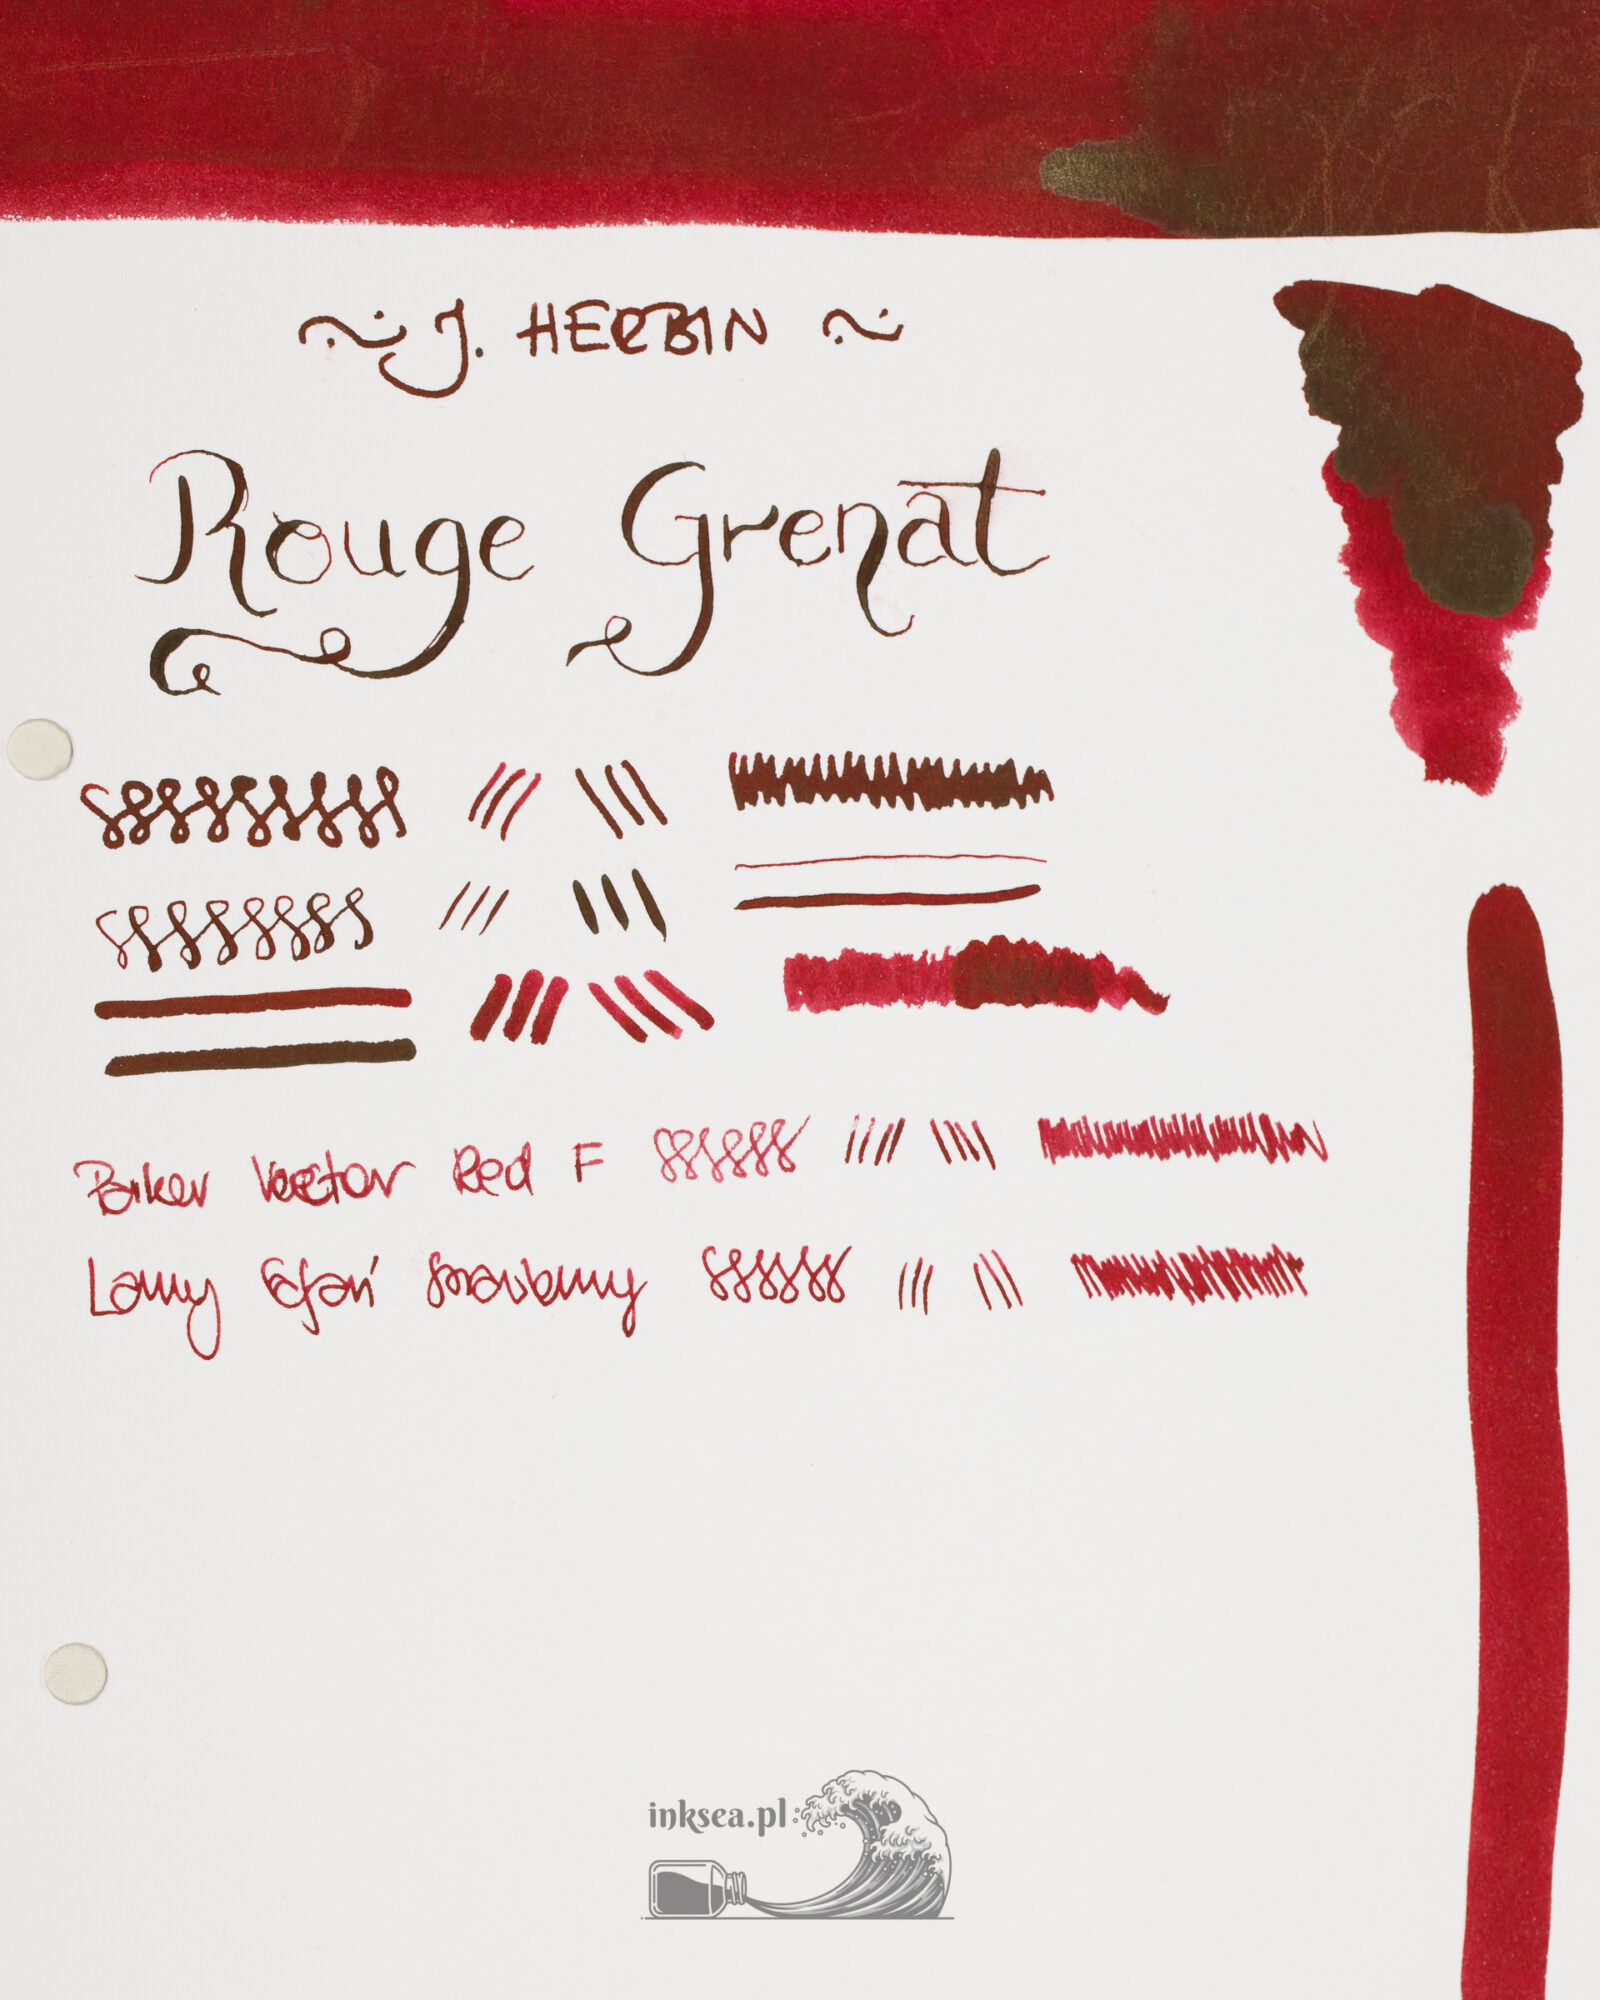 J. HERBIN
Rouge Grenat
Parker Vector Red F
Lamy Safari Strawberry
inksea.pl